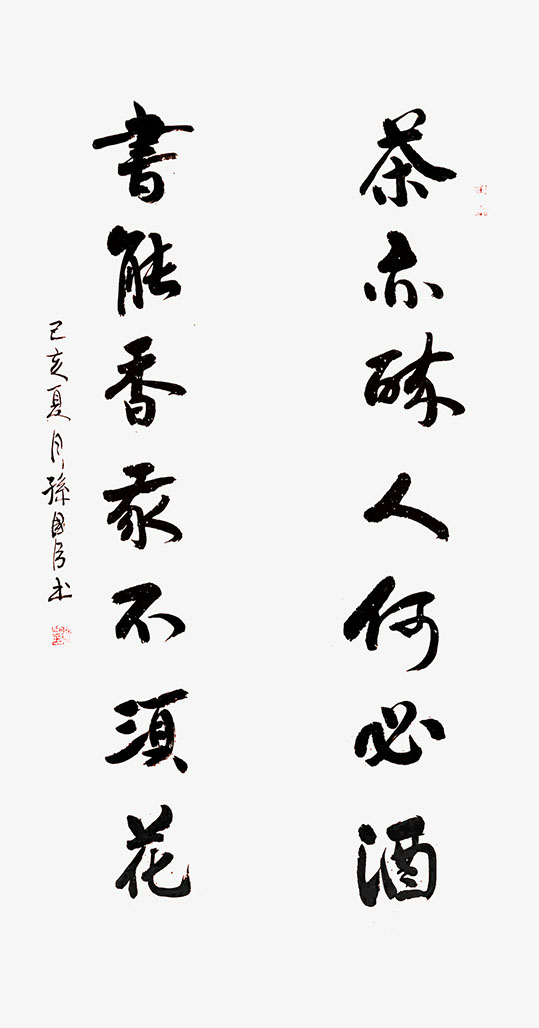 茶亦醉人何必酒
書能香我不須花
己亥夏月孫國房书